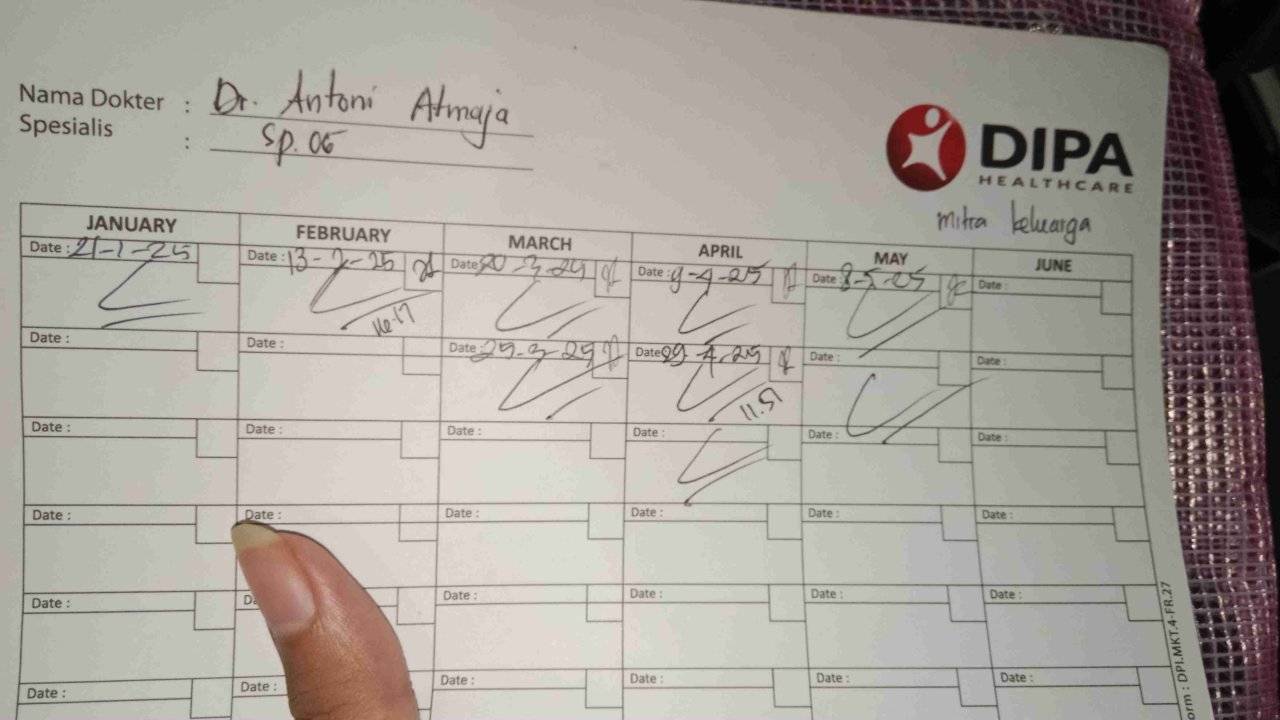 Nama Dokter : Dr. Antoni Atmaja
Spesialis : Sp. OG
DIPA
HEALTHCARE
mitra keluarga
JANUARY FEBRUARY MARCH APRIL MAY JUNE
Date : 21-1-25 Date : 13-2-25 Date : 20-3-25 Date : 9-4-25 Date : 8-5-25 Date :
Date : Date : Date : 25-3-25 Date : 29-4-25 Date : Date :
11.51
Date : Date : Date : Date : Date : Date :
Date : Date : Date : Date : Date : Date :
Date : Date : Date : Date : Date :
Date : Date : Date : Date : Date : Date :
orm : DPI.MKT.4-FR.27